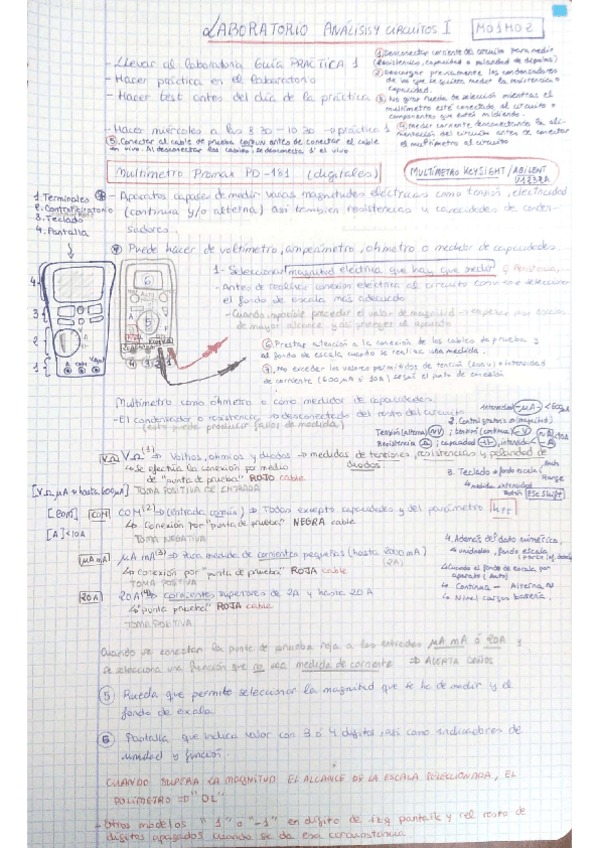 LABORATORIO ANÁLISIS Y CIRCUITOS I
M01M02
- Llevar al laboratorio GUÍA PRÁCTICA 1
- Hacer práctica en el laboratorio
- Hacer test antes del día de la práctica
- Hacer miércoles a las 8:30 - 10:30 → práctica 1
① Desconectar corriente del circuito para medir
resistencia, capacidad o polaridad de díodos
② Descargar previamente los condensadores
de los que se quiera medir la resistencia o
capacidad.
③ No girar rueda de selección mientras el
multímetro esté conectado al circuito o
componentes que estés midiendo.
④ medir corriente, desconectamos la ali-
mentación del circuito antes de conectar
el multímetro al circuito
⑤ Conectar al cable de prueba común antes de conectar el cable
en vivo. Al desconectar los cables, se desconecta 1º el vivo
Multímetro Promax PD-181 (digitales)
MULTÍMETRO KEYSIGHT / AGILENT
1. Terminales
3. Teclado
4. Pantalla
- Aparatos capaces de medir varias magnitudes eléctricas como tensión, electricidad
(continua y/o alterna) así también resistencias y capacidades de conden-
sadores.
Puede hacer de voltímetro, amperímetro, ohmetro o medidor de capacidades.
1 - Seleccionar magnitud eléctrica que hay que medir
- Antes de realizar conexión eléctrica al circuito
el fondo de escala más adecuado
de mayor alcance, y así proteger el aparato
4
3
2
1
6
5
4 3 2 1
⑥ Prestar atención a la conexión de los cables de prueba y
al fondo de escala cuando se realice una medida.
⑦ No exceder los valores permitidos de tensión
de corriente (600 μA ó 10A) según el punto de conexión
Multímetro como ohmetro o como medidor de capacidades
- El condensador o resistencia → desconectado del resto del circuito
(esto puede producir fallos de medida)
VΩ VΩ (1) ⇒ Voltios, ohmios y diodos → medidas de tensiones, resistencias y polaridad de
diodos
↳ se efectúa la conexión por medio
de "punta de prueba" ROJO cable
TOMA POSITIVA DE ENTRADA
[COM] COM COM (2) → (entrada común) ⇒ Todas excepto capacidades y del parámetro hFE
↳ Conexión por "punta de prueba" NEGRA cable
TOMA NEGATIVA
[A] <10A
μA mA μA mA (3) ⇒ Para medida de corrientes pequeñas (hasta 2000 mA)
(2A)
↳ conexión por "punta de prueba" ROJA cable
TOMA POSITIVA
20A 20A (4) ⇒ corrientes superiores de 2A y hasta 20A
↳ "punta prueba" ROJA cable
TOMA POSITIVA
Tensión (alterna) ~V ; (continua)
Resistencia Ω ; capacidad
3. Teclado
Shift
4. Además del dato numérica,
↳ unidades, fondo escala
aparato (Auto)
↳ Continua - Alterna
↳ Nivel cargas batería.
Cuando se conectan la punta de prueba roja a las entradas μA mA ó 20A y
se selecciona una función que no sea medida de corriente ⇒ ALERTA DAÑOS
⑤ Rueda que permite seleccionar la magnitud que se ha de medir y el
fondo de escala
⑥ Pantalla que indica valor con 3 ó 4 dígitos, así como indicadores de
unidad y función.
CUANDO SUPERA LA MAGNITUD EL ALCANCE DE LA ESCALA SELECCIONADA, EL
POLÍMETRO ⇒ "OL"
- Otros modelos "1" o "-1" en dígito de izq pantalla y el resto de
dígitos apagados cuando se da esa circunstancia.